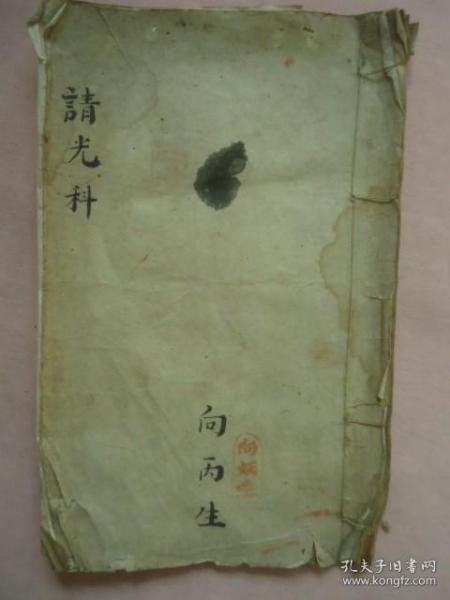 請光科
向丙生
向炳生
孔夫子旧书网
www.kongfz.com